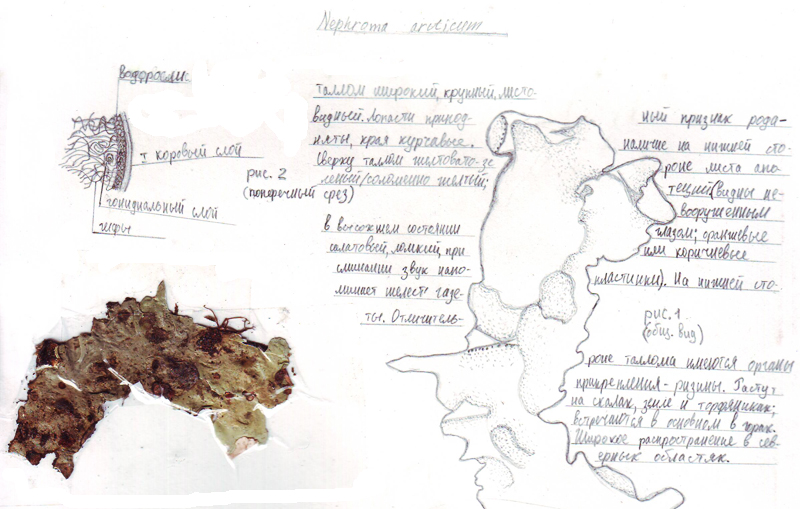 Nephroma arcticum
водоросли
т коровый слой
гонидиальный слой
гифы
рис. 2
(поперечный срез)
таллом широкий, крупный, листо-
видный. Лопасти припод-
няты, края курчавые.
Сверху таллом желтовато-зе
леный/соломенно желтый;
в высохшем состоянии
салатовый, ломкий, при
сминании звук напо-
минает шелест газе-
ты. Отличитель-
ный признак рода-
наличие на нижней сто-
роне листа апо-
теций (видны не-
вооруженным
глазом; оранжевые
или коричневые
пластинки). На нижней сто-
рис. 1
(общ. вид)
роне таллома имеются органы
прикрепления - ризины. Растут
на скалах, земле и торфяниках;
встречаются в основном в горах.
Широкое распространение в сев
ерных областях.